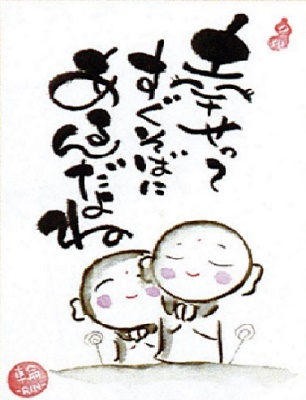 幸せって
すぐそばに
あるんだよね
輪
-RIN-